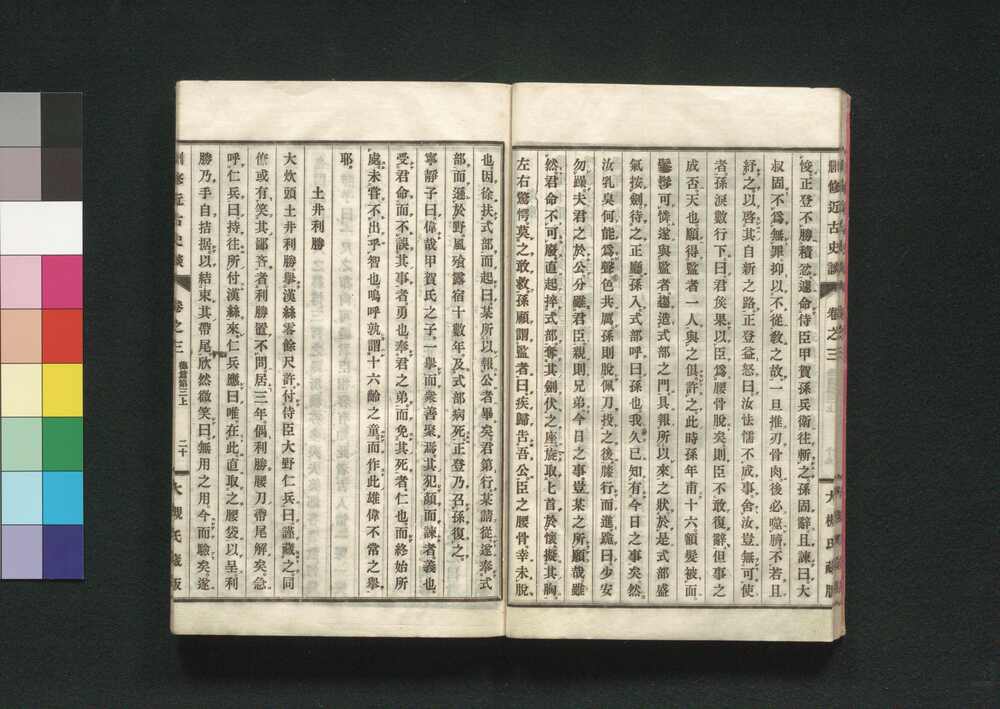 刪修近古史談 卷之三 大槻氏藏版
悛正登不勝積忿遽命侍臣甲賀孫兵衛往斬之孫固辭且諫曰大
叔固不爲無罪抑以不從敎之故一旦推刃骨肉後必噬臍不若且
紓之以啓其自新之路正登益怒曰汝怯懦不成事舍汝豈無可使
者孫淚數行下曰君矦果以臣爲腰骨脫矣則臣不敢復辭但事之
成否天也願得監者一人與之俱許之此時孫年甫十六額髮被面
鬖鬖可憐遂與監者趨造式部之門具報所以來之狀於是式部盛
氣按劍待之正廳孫入式部呼曰孫也我久已知有今日之事矣然
汝乳臭何能爲聲色共厲孫則脫佩刀投之後膝行而進跪曰少安
勿躁夫君之於公分雖君臣親則兄弟今日之事豈某之所願哉雖
然君命不可廢直起捽式部奪其劍伏之座旋取匕首於懷擬其胸
左右驚愕莫之敢救孫顧謂監者曰疾歸告吾公臣之腰骨幸未脫
也因徐扶式部而起曰某所以報公者畢矣君第行某請從遂奉式
部而遜於野風飱露宿十數年及式部病死正登乃召孫復之
寧靜子曰偉哉甲賀氏之子一擧而衆善聚焉其犯顏而諫者義也
受君命而不誤其事者勇也奉君之弟而免其死者仁也而終始所
處未嘗不出乎智也嗚呼孰謂十六齡之童而作此雄偉不常之擧
耶
土井利勝
大炊頭土井利勝擧漢絲零餘尺許付侍臣大野仁兵曰謹藏之同
僚或有笑其鄙吝者利勝置不問居三年偶利勝腰刀帶尾解矣急
呼仁兵曰持往所付漢絲來仁兵應曰唯在此直取之腰袋以呈利
勝乃手自拮据以結束其帶尾欣然微笑曰無用之用今而驗矣遂
刪修近古史談 卷之三 德篇第三上 二十 大槻氏藏版